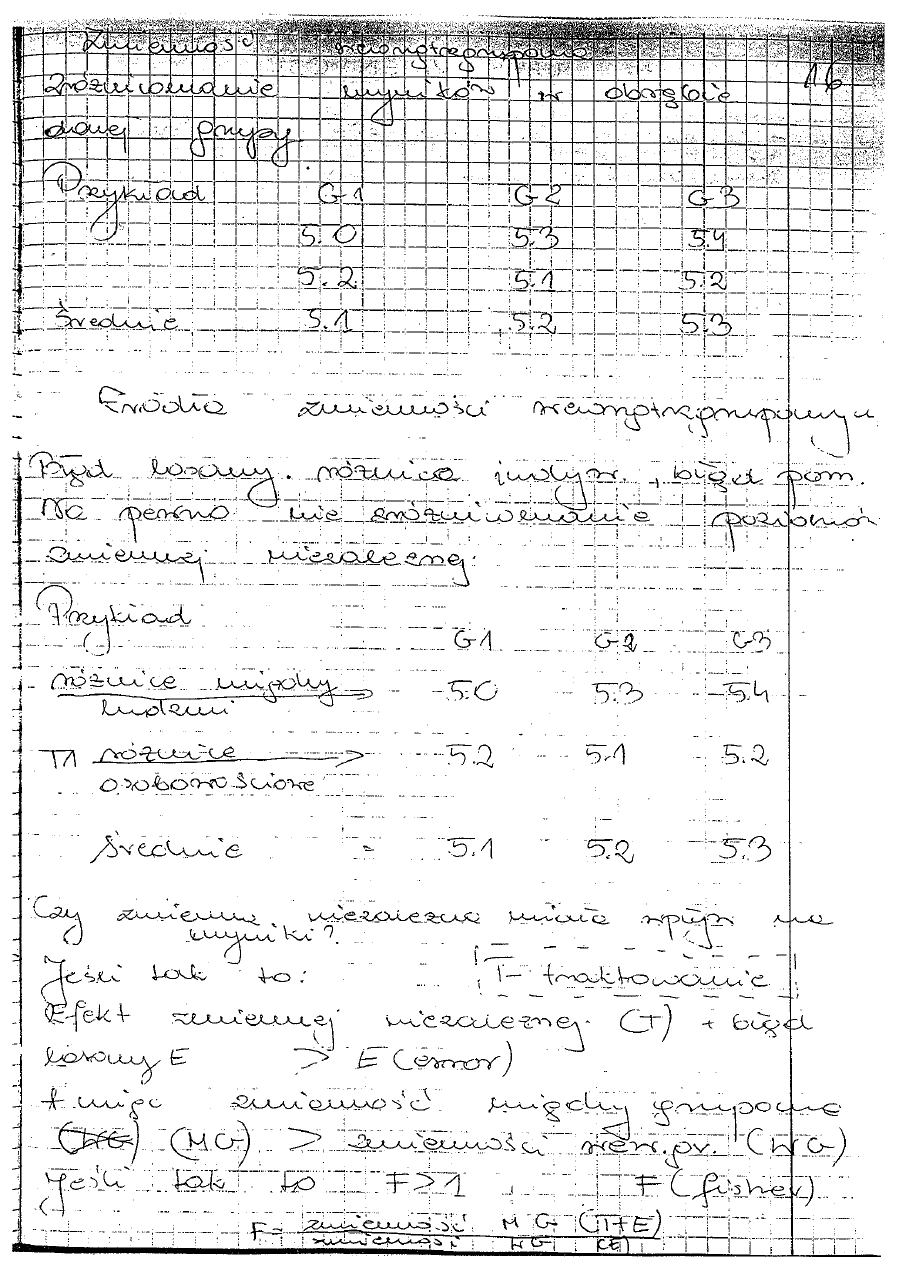 Zmienność wewnątrzgrupowa
16
zróżnicowanie wyników w obrębie
danej grupy.
Przykład G1 G2 G3
5.0 5.3 5.4
5.2 5.1 5.2
Średnie 5.1 5.2 5.3
Źródła zmienności wewnątrzgrupowej
Błąd losowy. różnica indyw., błąd pom.
Na pewno nie zróżnicowanie poziomów
zmiennej niezależnej.
Przykład
G1 G2 G3
różnice między → 5.0 5.3 5.4
ludźmi
T1 różnice → 5.2 5.1 5.2
osobowościowe
Średnie = 5.1 5.2 5.3
Czy zmienna niezależna miała wpływ na
wyniki?
Jeśli tak to: T- traktowanie
Efekt zmiennej niezależnej (T) + błąd
losowy E > E (error)
A więc zmienność między grupowa
(WG) (MG) > zmienności wew.gr. (WG)
Jeśli tak to F>1 F (fisher)
F= zmienność MG (T+E)
zmienność WG (E)